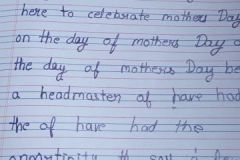 here to celebrate mothers Day
on the day of mothers Day
the day of mothers Day be
a headmaster of have had
the of have had the